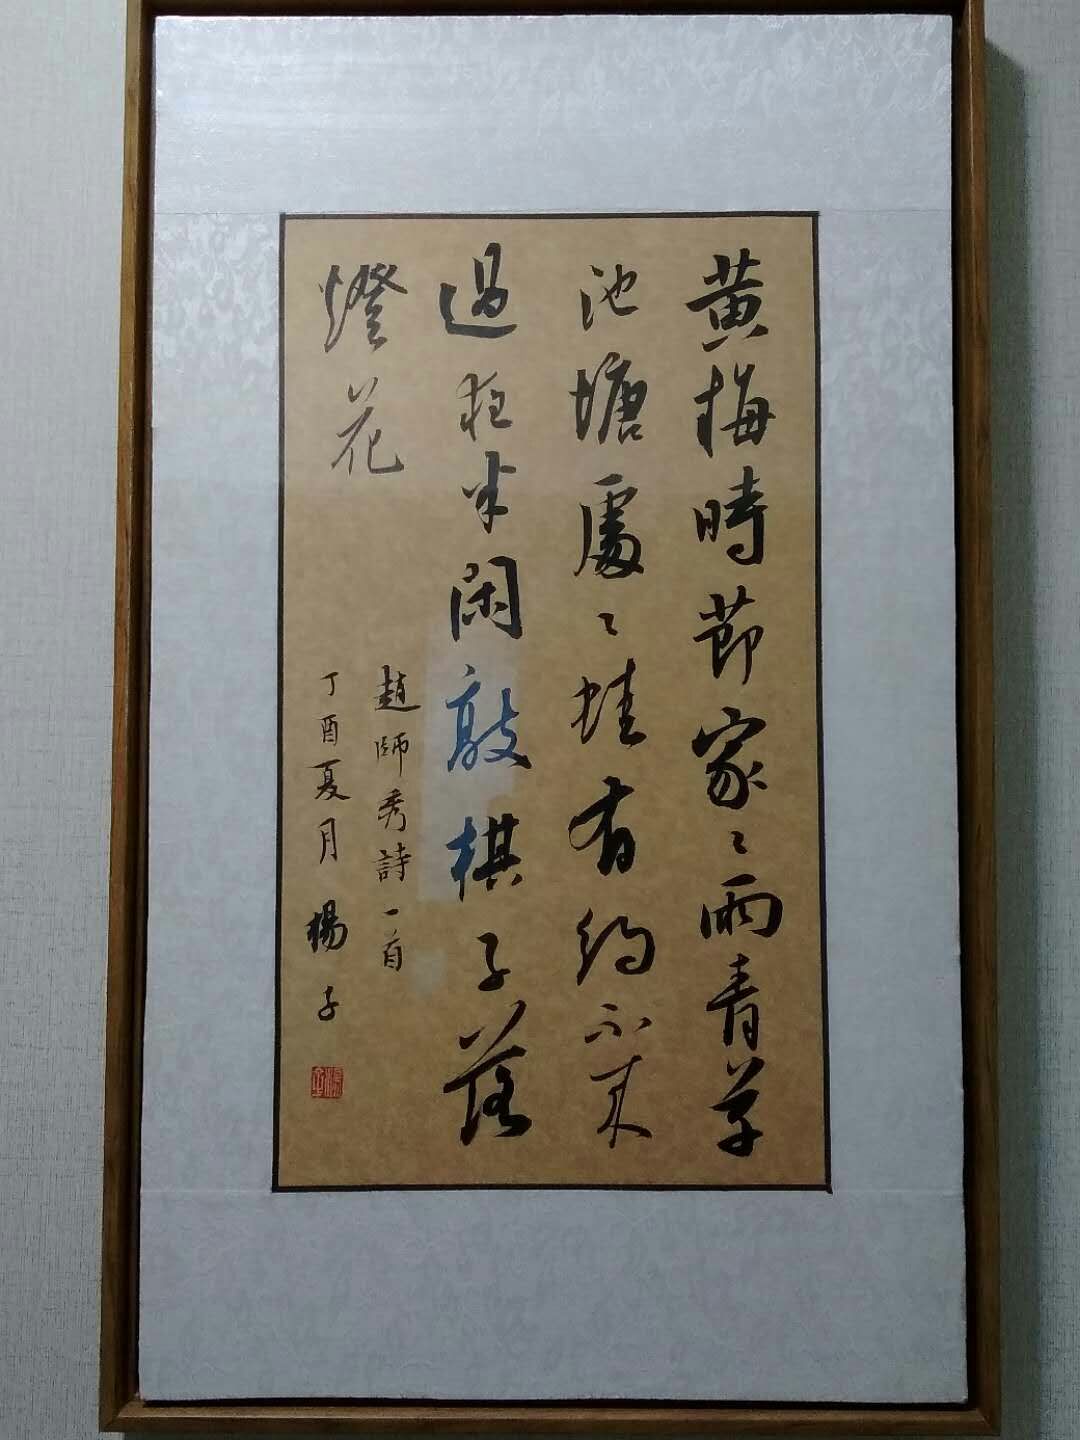 黄梅時節家〻雨青草
池塘處〻蛙有約不来
過夜半閑敲棋子落
燈花
趙師秀詩一首
丁酉夏月楊子